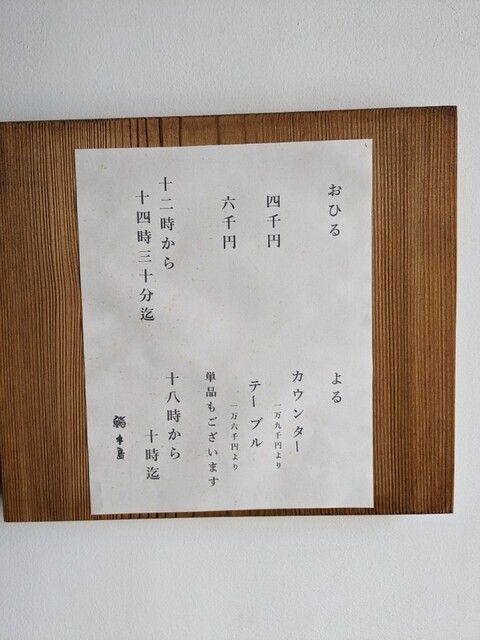 おひる
四千円
六千円
十二時から
十四時三十分迄
よる
カウンター
一万九千円より
テーブル
一万六千円より
単品もございます
十八時から
十時迄